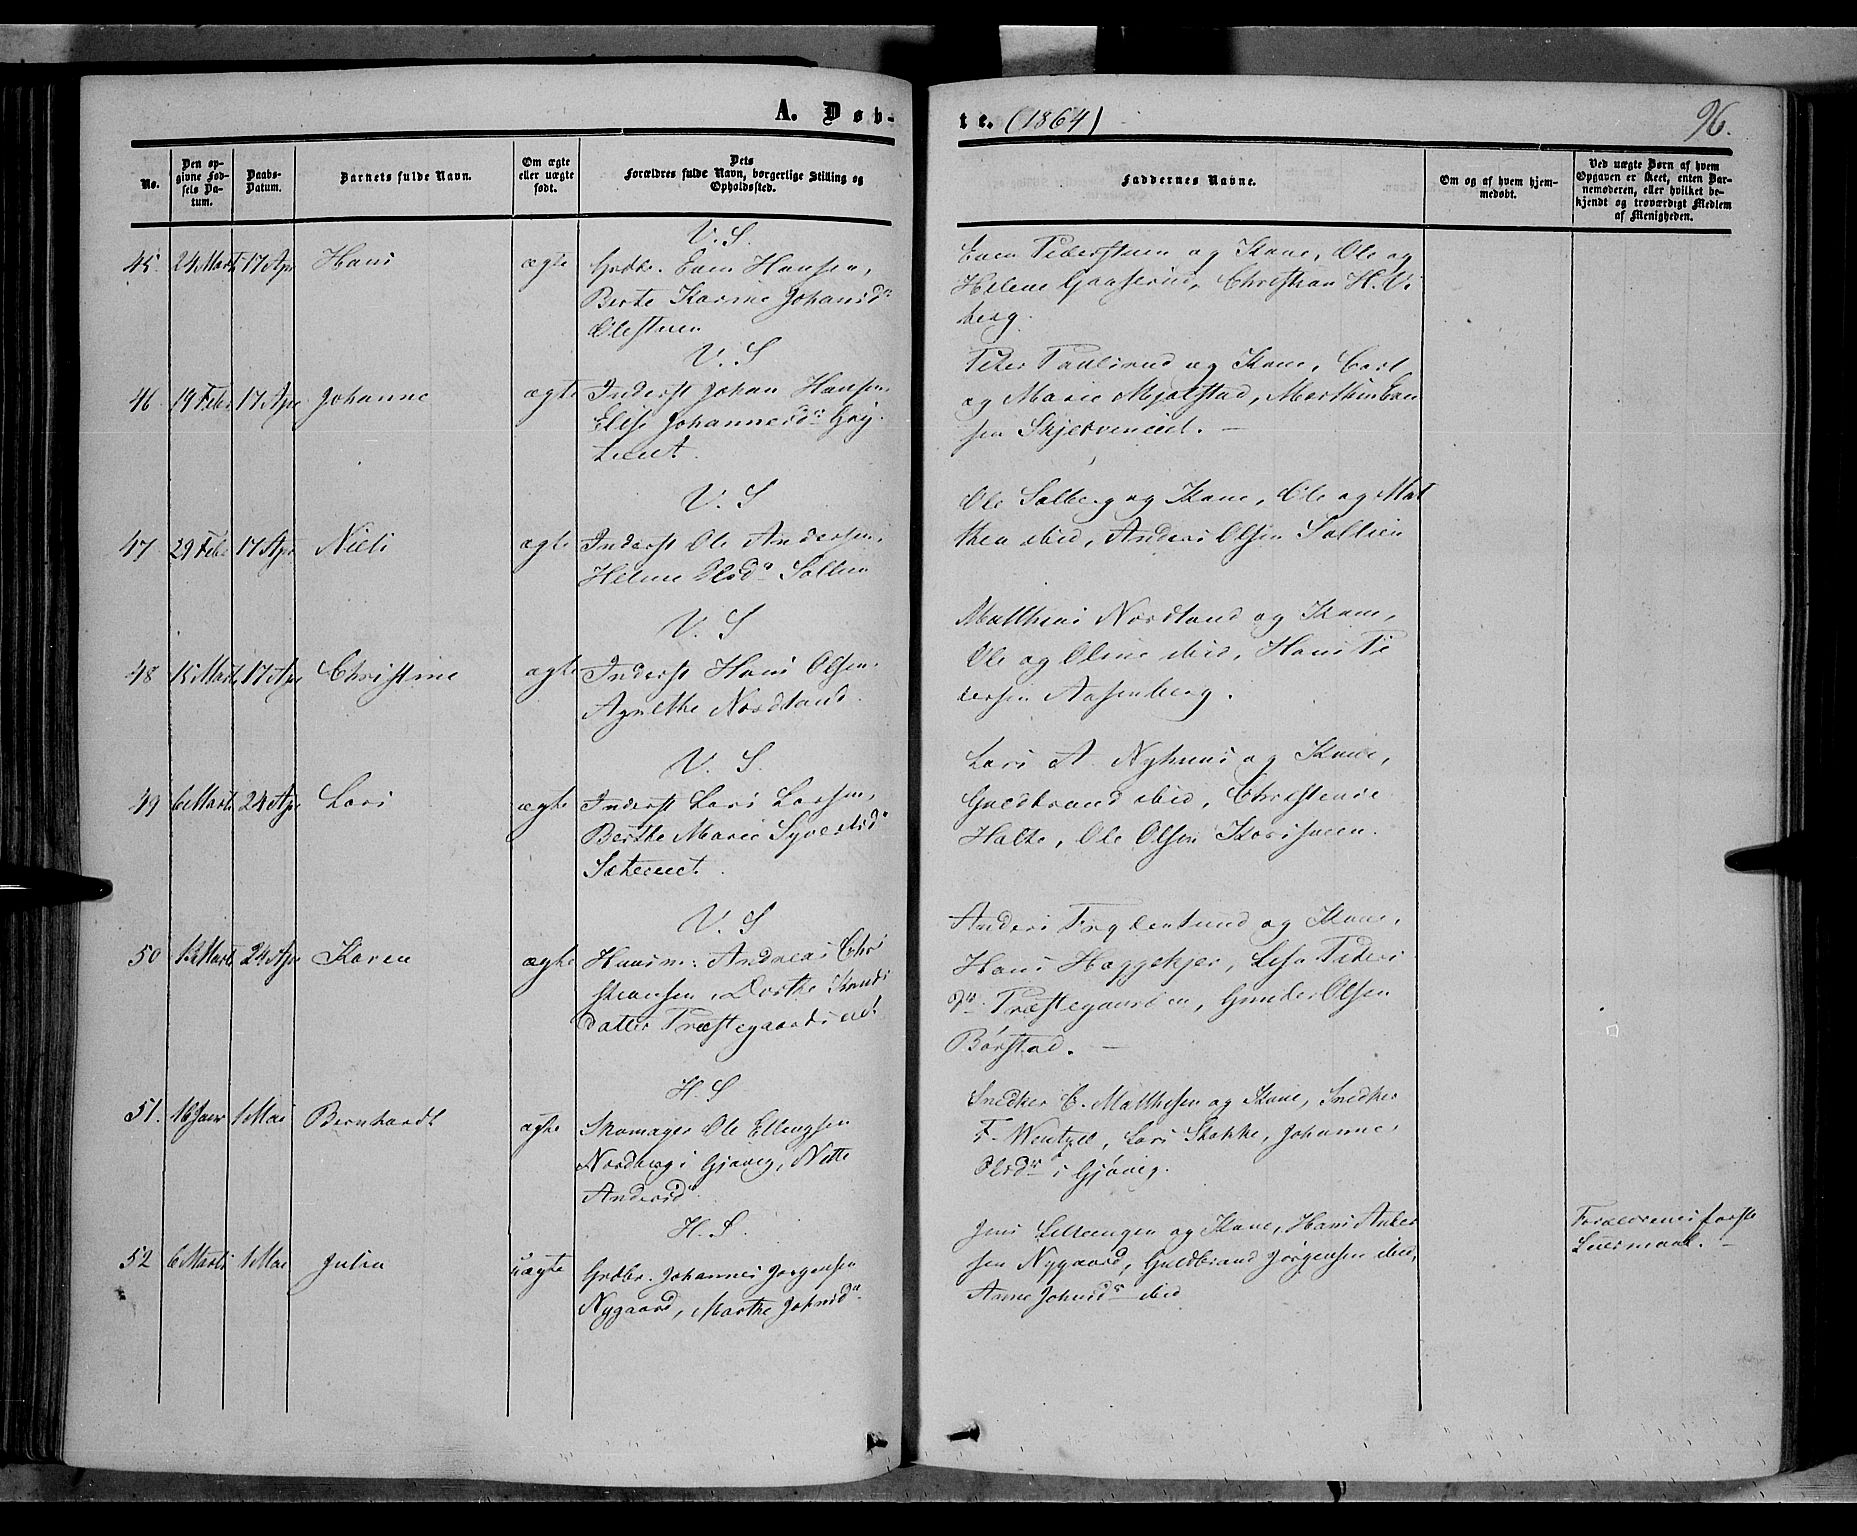 A. Døb-
te. (1864)
96.
No.
Den opgivne Fødsels Datum.
Daabs-Datum.
Barnets fulde Navn.
Om ægte eller uægte født.
Dets Forældres fulde Navn, borgerlige Stilling og Opholdssted.
Faddernes Navne.
Om og af hvem hjemmedøbt.
Ved uægte Børn af hvem Opgaven er skeet, enten Barnemoderen, eller hvilket bekjendt og troværdigt Medlem af Menigheden.
V. S.
45. 24 Marts 17 Apr Hans ægte Grdbr. Even Hansen,
Berte Karine Johansdr
Olestuen
Even Pederstuen og Kone, Ole og
Helene Gaaserud, Christian H. Vi
berg.
V. S
46 19 Febr 17 Apr Johanne ægte Inderst Johan Hansen,
Elise Johannesdr
Peter Paulsrud og Kone, Carl
og Marie Mjølstad, Marthin Evan
sen
V. S
47 29 Febr 17 Apr Niels ægte Inderst Ole Andersen,
Helene Olsdr Sollien
Ole Solberg og Kone, Ole og Mat
thea ibid, Anders Olsen Sollien
V. S
48 15 Marts 17 Apr Christine ægte Inderst Hans Olsen,
Agnethe Nordland.
Matthias Nordland og Kone,
Ole og Oline ibid, Hans Pe
dersen Aasenberg.
V. S.
49 6 Marts 24 Apr Lars ægte Inderst Lars Larsen,
Berthe Marie Syversdr
Sætereiet.
Lars A. Nyhuus og Kone,
Guldbrand ibid, Christense
Ole Olsen
V. S
50 13 Marts 24 Apr Karen ægte Huusm: Andreas Chri
stiansen, Dorthe Knuds
datter Præstegaardseiet
Anders Frydenlund og Kone,
Hans Haggekjer, Lisa Peders
dr Præstegaarden, Gunder Olsen
Børstad.
H. S
51. 16 Janr 1 Mai Bernhardt ægte Skomager Ole Ellingsen
Nordberg i Gjøvig, Nette
Andersdr
Snedker C. Mathesen og Kone, Snedker
F. Wentzel, Lars Stokke, Johanne
Olsdr i Gjøvig.
H. S.
52 6 Marts 1 Mai Julia uægte Grdbr. Johannes Jørgensen
Nygaard, Marthe Johnsdr
Jens og Kone, Hans
sen Nygaard, Guldbrand Jørgensen ibid,
Anne Johnsdr ibid
Forældrenes første
Leiermaal.